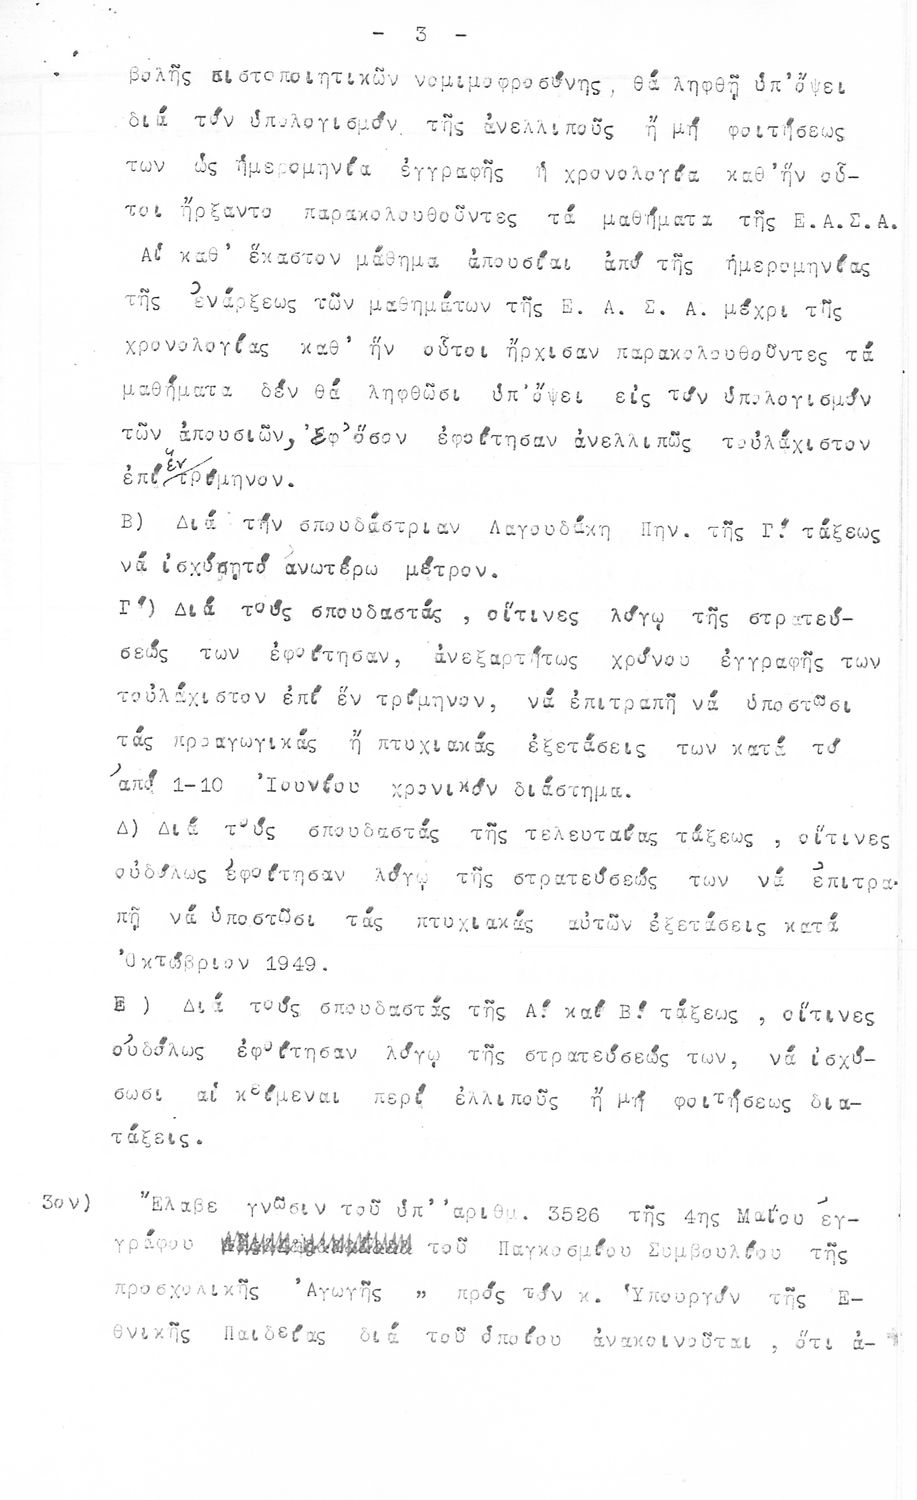 - 3 -
βολῆς πιστοποιητικῶν νομιμοφροσύνης, θά ληφθῇ ὑπ' ὄψει
διά τόν ὑπολογισμόν τῆς ἀνελλιποῦς ἤ μή φοιτήσεως
των ὡς ἡμερομηνία ἐγγραφῆς ἡ χρονολογία καθ' ἥν οὗ-
τοι ἤρξαντο παρακολουθοῦντες τά μαθήματα τῆς Ε.Α.Σ.Α.
Αἱ καθ' ἕκαστον μάθημα ἀπουσίαι ἀπό τῆς ἡμερομηνίας
τῆς ἐνάρξεως τῶν μαθημάτων τῆς Ε. Α. Σ. Α. μέχρι τῆς
χρονολογίας καθ' ἥν οὗτοι ἤρχισαν παρακολουθοῦντες τά
μαθήματα δέν θά ληφθῶσι ὑπ' ὄψει εἰς τόν ὑπολογισμόν
τῶν ἀπουσιῶν, ἐφ' ὅσον ἐφοίτησαν ἀνελλιπῶς τοὐλάχιστον
ἐπί ἕν τρίμηνον.
Β) Διά τήν σπουδάστριαν Λαγουδάκη Πην. τῆς Γ! τάξεως
νά ἰσχύσῃ τό ἀνωτέρω μέτρον.
Γ') Διά τούς σπουδαστάς , οἵτινες λόγῳ τῆς στρατεύ-
σεώς των ἐφοίτησαν, ἀνεξαρτήτως χρόνου ἐγγραφῆς των
τοὐλάχιστον ἐπί ἕν τρίμηνον, νά ἐπιτραπῇ νά ὑποστῶσι
τάς προαγωγικάς ἤ πτυχιακάς ἐξετάσεις των κατά τό
ἀπό 1-10 Ἰουνίου χρονικόν διάστημα.
Δ) Διά τούς σπουδαστάς τῆς τελευταίας τάξεως , οἵτινες
οὐδόλως ἐφοίτησαν λόγῳ τῆς στρατεύσεώς των νά ἐπιτρα-
πῇ νά ὑποστῶσι τάς πτυχιακάς αὐτῶν ἐξετάσεις κατά
Ὀκτώβριον 1949.
Ε ) Διά τούς σπουδαστάς τῆς Α! καί Β! τάξεως , οἵτινες
οὐδόλως ἐφοίτησαν λόγῳ τῆς στρατεύσεώς των, νά ἰσχύ-
σωσι αἱ κείμεναι περί ἐλλιποῦς ἤ μή φοιτήσεως δια-
τάξεις.
3ον) Ἔλαβε γνῶσιν τοῦ ὑπ' ἀριθμ. 3526 τῆς 4ης Μαΐου ἐγ-
γράφου τοῦ Παγκοσμίου Συμβουλίου τῆς
προσχολικῆς Ἀγωγῆς " πρός τόν κ. Ὑπουργόν τῆς Ε-
θνικῆς Παιδείας διά τοῦ ὁποίου ἀνακοινοῦται , ὅτι ἀ-